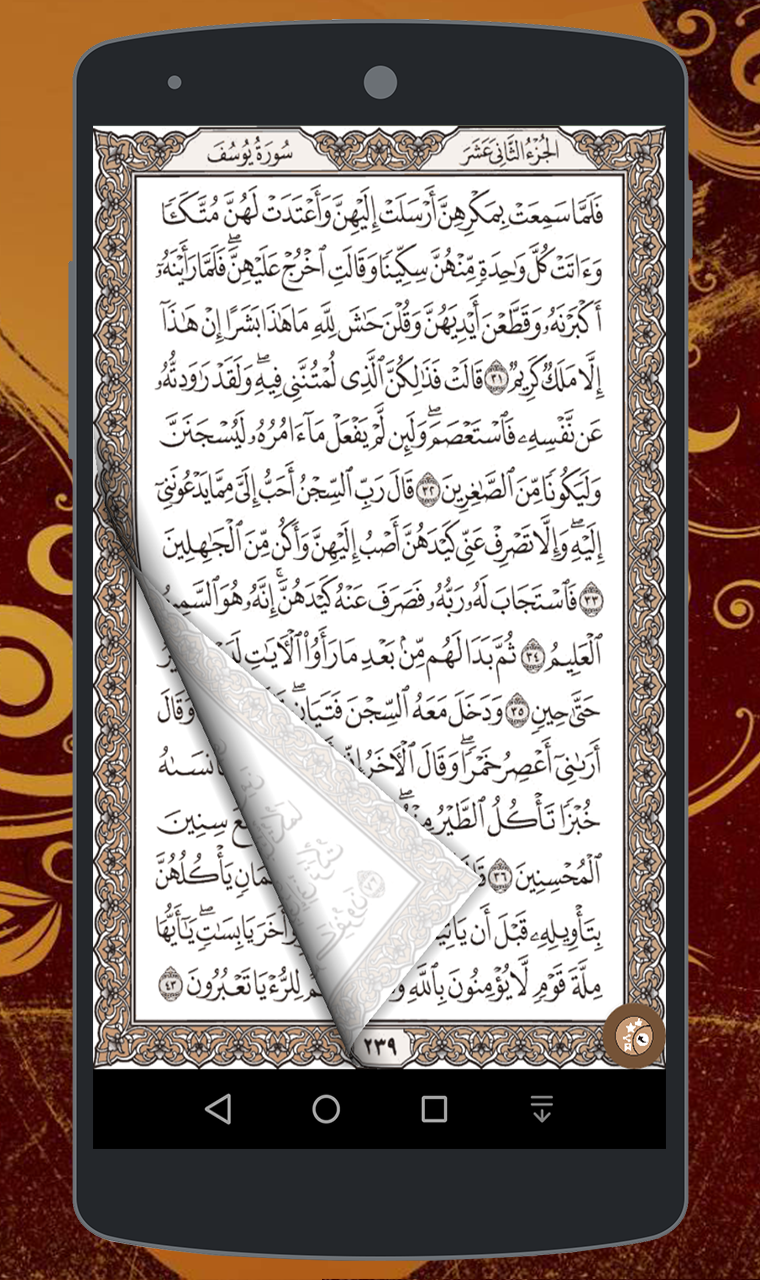 الجُزْءُ الثَّانِي عَشَرَ
سُورَةُ يُوسُفَ
فَلَمَّا سَمِعَتْ بِمَكْرِهِنَّ أَرْسَلَتْ إِلَيْهِنَّ وَأَعْتَدَتْ لَهُنَّ مُتَّكَـًٔا
وَءَاتَتْ كُلَّ وَٰحِدَةٍ مِّنْهُنَّ سِكِّينًا وَقَالَتِ ٱخْرُجْ عَلَيْهِنَّ ۖ فَلَمَّا رَأَيْنَهُۥٓ
أَكْبَرْنَهُۥ وَقَطَّعْنَ أَيْدِيَهُنَّ وَقُلْنَ حَٰشَ لِلَّهِ مَا هَٰذَا بَشَرًا إِنْ هَٰذَآ
إِلَّا مَلَكٌ كَرِيمٌ ٣١ قَالَتْ فَذَٰلِكُنَّ ٱلَّذِى لُمْتُنَّنِى فِيهِ ۖ وَلَقَدْ رَٰوَدتُّهُۥ
عَن نَّفْسِهِۦ فَٱسْتَعْصَمَ ۖ وَلَئِن لَّمْ يَفْعَلْ مَآ ءَامُرُهُۥ لَيُسْجَنَنَّ
وَلَيَكُونًا مِّنَ ٱلصَّٰغِرِينَ ٣٢ قَالَ رَبِّ ٱلسِّجْنُ أَحَبُّ إِلَىَّ مِمَّا يَدْعُونَنِىٓ
إِلَيْهِ ۖ وَإِلَّا تَصْرِفْ عَنِّى كَيْدَهُنَّ أَصْبُ إِلَيْهِنَّ وَأَكُن مِّنَ ٱلْجَٰهِلِينَ
٣٣ فَٱسْتَجَابَ لَهُۥ رَبُّهُۥ فَصَرَفَ عَنْهُ كَيْدَهُنَّ ۚ إِنَّهُۥ هُوَ
ٱلْعَلِيمُ ٣٤ ثُمَّ بَدَا لَهُم مِّنۢ بَعْدِ مَا رَأَوُا۟ ٱلْءَايَٰتِ
حَتَّىٰ حِينٍ ٣٥ وَدَخَلَ مَعَهُ ٱلسِّجْنَ فَتَيَانِ ۖ وَقَالَ
أَرَىٰنِىٓ أَعْصِرُ خَمْرًا ۖ وَقَالَ ٱلْءَاخَرُ
خُبْزًا تَأْكُلُ ٱلطَّيْرُ سِنِينَ
ٱلْمُحْسِنِينَ ٣٦ يَأْكُلُهُنَّ
بِتَأْوِيلِهِۦ قَبْلَ أَن يَابِسَٰتٍ ۖ يَٰٓأَيُّهَا
مِلَّةَ قَوْمٍ لَّا يُؤْمِنُونَ بِٱللَّهِ لِلرُّءْيَا تَعْبُرُونَ ٤٣
٢٣٩